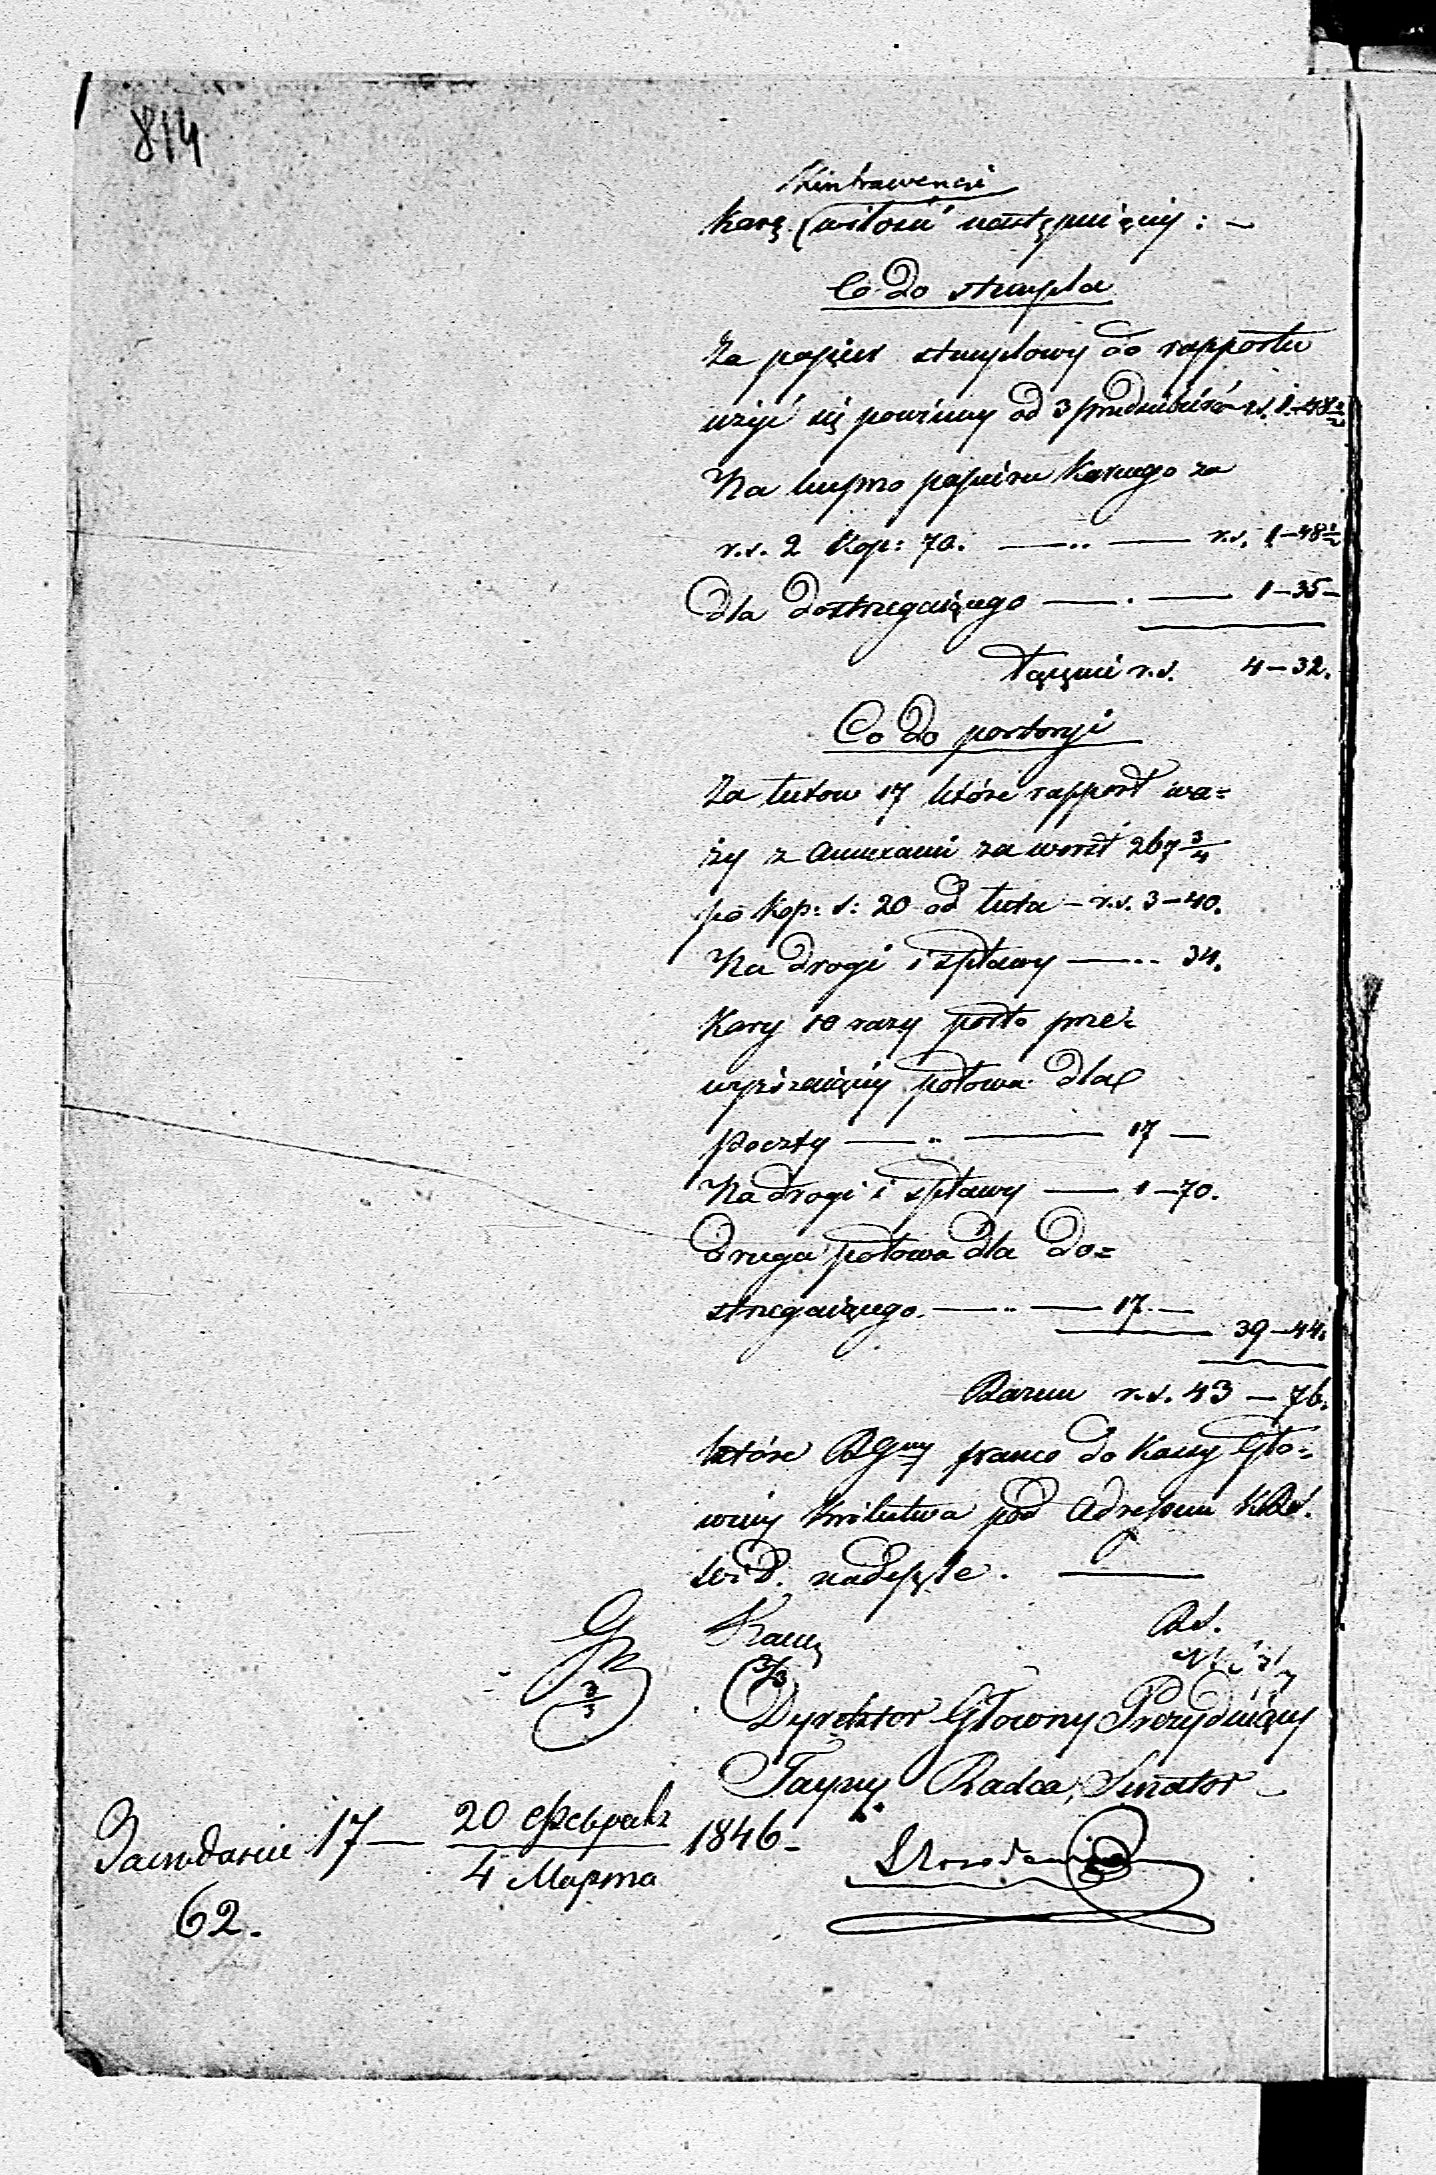 814
Kontrawencji
karę w ilości następnięcij : –
Co do stempla
Za papier stemplowy do rapportu
użyć się powinny od 3 r.s. 1–48 1/2
Na kupno papieru karnego za
r.s. 2 Kop: 70. — .. — r.s. 1–48 1/2
dla dostrzegaiącego — . — 1–35–
Łącznie r.s. 4–32.
Co do portoryi
Za łutów 17 które rapport wa=
ży z annexami za worst 267 3/4
po kop: s: 20 od łuta – r.s. 3–40.
Na drogi i spławy — .. 34.
Kary 10 razy porto prze=
wyższaiącey połowa dla
Poczty — .. — 17 —
Na drogi i spławy — 1–70.
Druga połowa dla do=
strzegaiącego. — .. — 17. —
39–44.
Razem r.s. 43 – 76.
które franco do Kassy Głó=
wney Królestwa pod Adressem
nadeszle. —
3/3
Dyrektor Główny Prezyduiący
Tayny Radca, Senator
Заседание 17 — 20 Февраля / 4 Марта 1846 –
62.